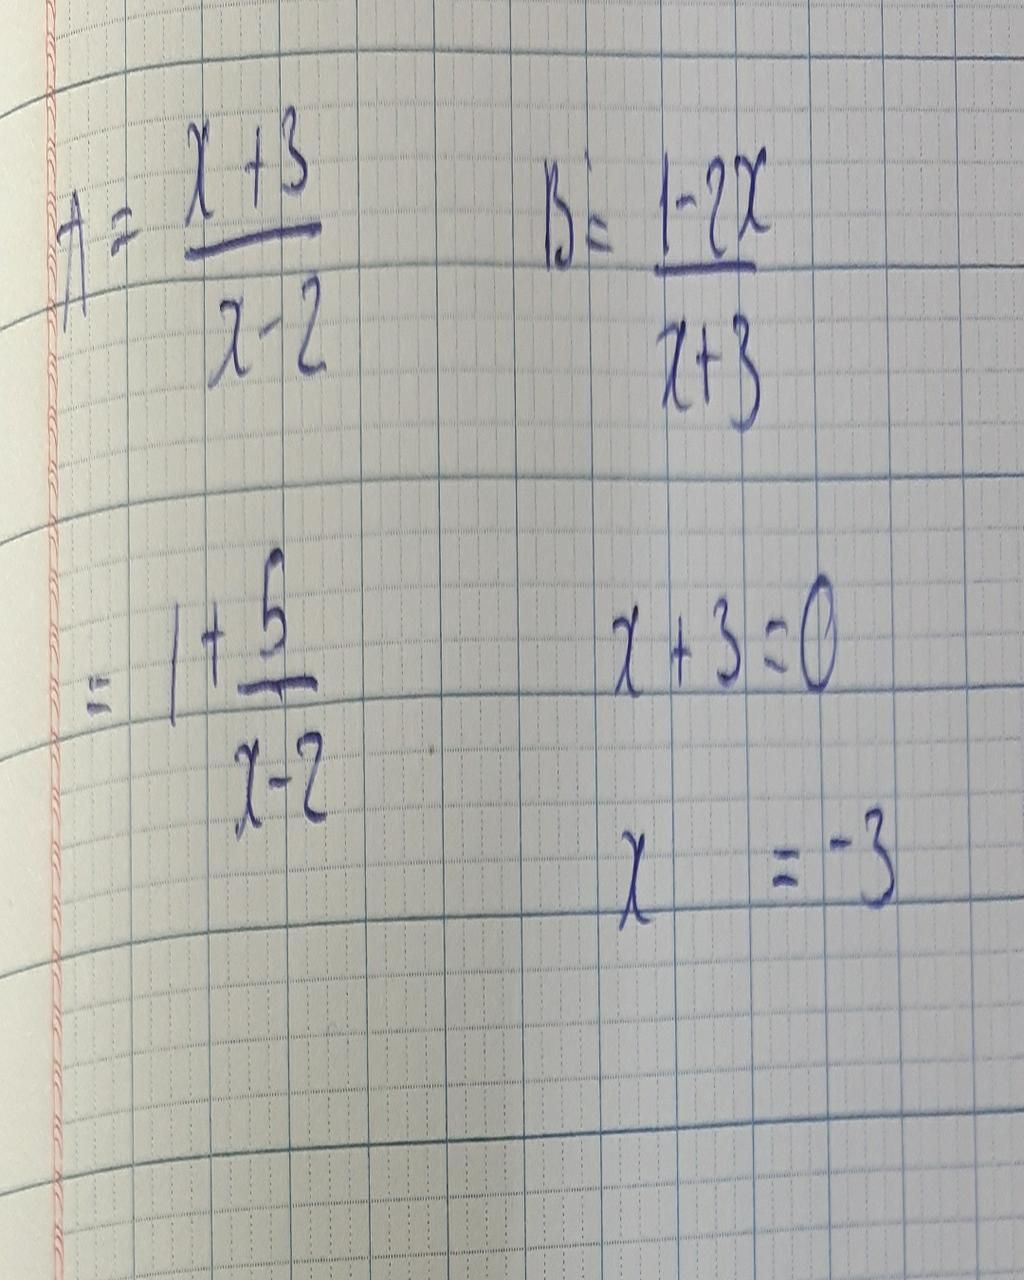 A = (x + 3)/(x - 2)
B = (1 - 2x)/(x + 3)
= 1 + 5/(x - 2)
x + 3 = 0
x = -3